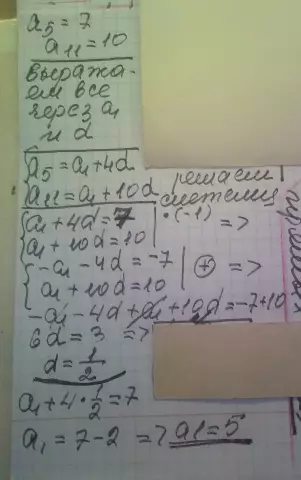 a₅ = 7
a₁₁ = 10
выража-
ем все
через a₁
и d
{a₅ = a₁ + 4d
a₁₁ = a₁ + 10d решаем
систему
{a₁ + 4d = 7 | · (-1) =>
a₁ + 10d = 10
{-a₁ - 4d = -7 | ⊕ =>
a₁ + 10d = 10
-a₁ - 4d + a₁ + 10d = -7 + 10
6d = 3 =>
d = 1/2
a₁ + 4 · 1/2 = 7
a₁ = 7 - 2 => a1 = 5